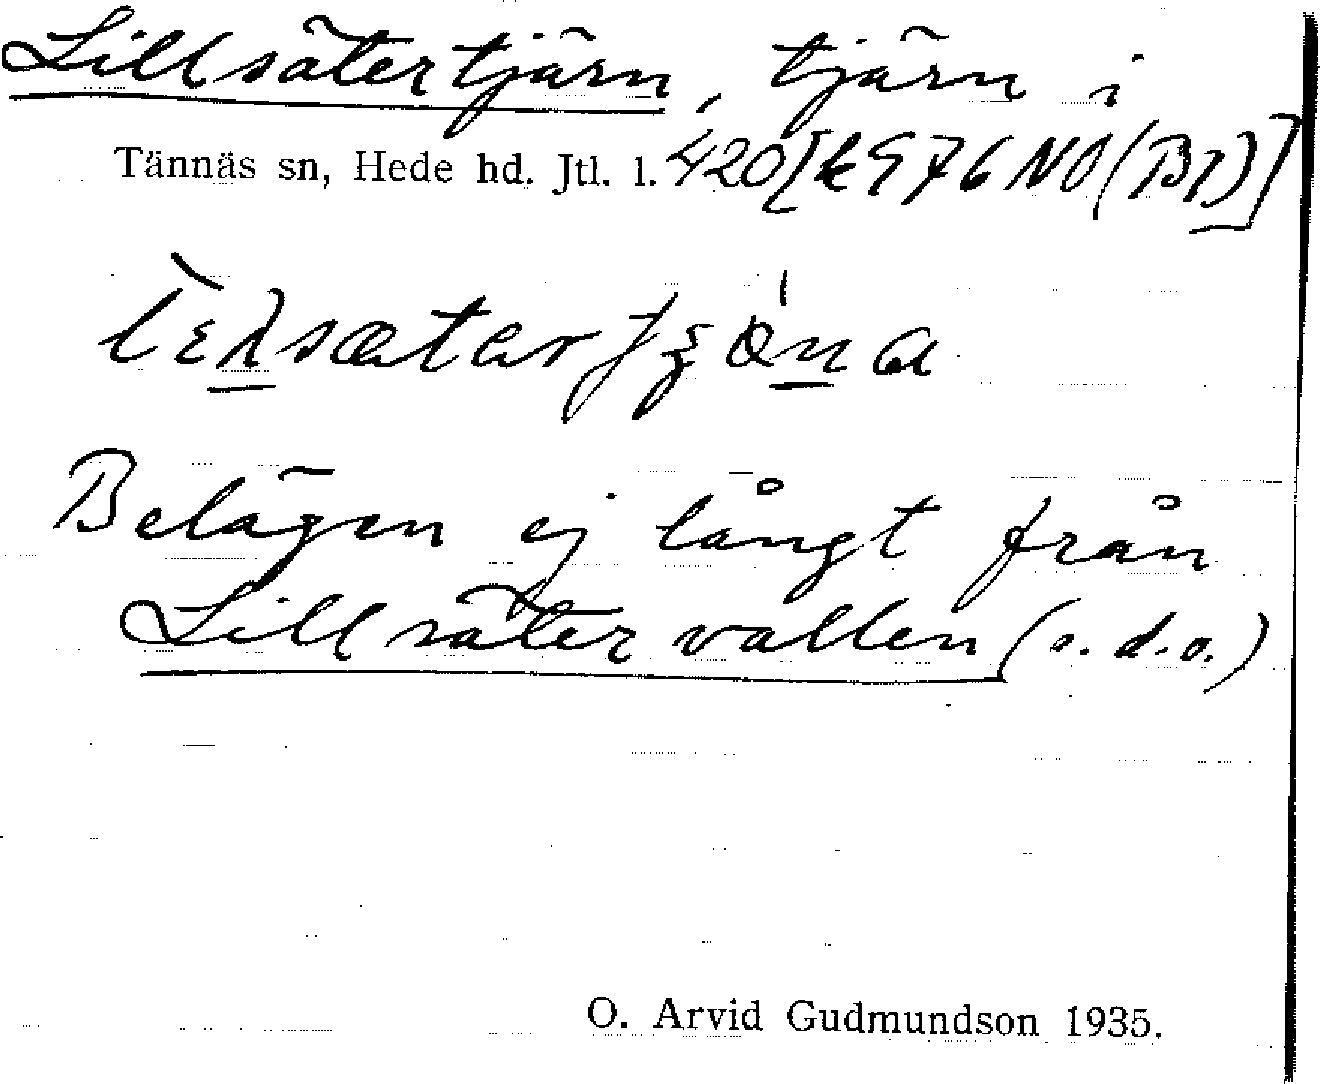 Lillsätertjärn, tjärn i
Tännäs sn, Hede hd. Jtl. l. 420 [k 976 NO (BI)]
Belägen ej långt från
Lillsätervallen (s.d.o.)
O. Arvid Gudmundson 1935.